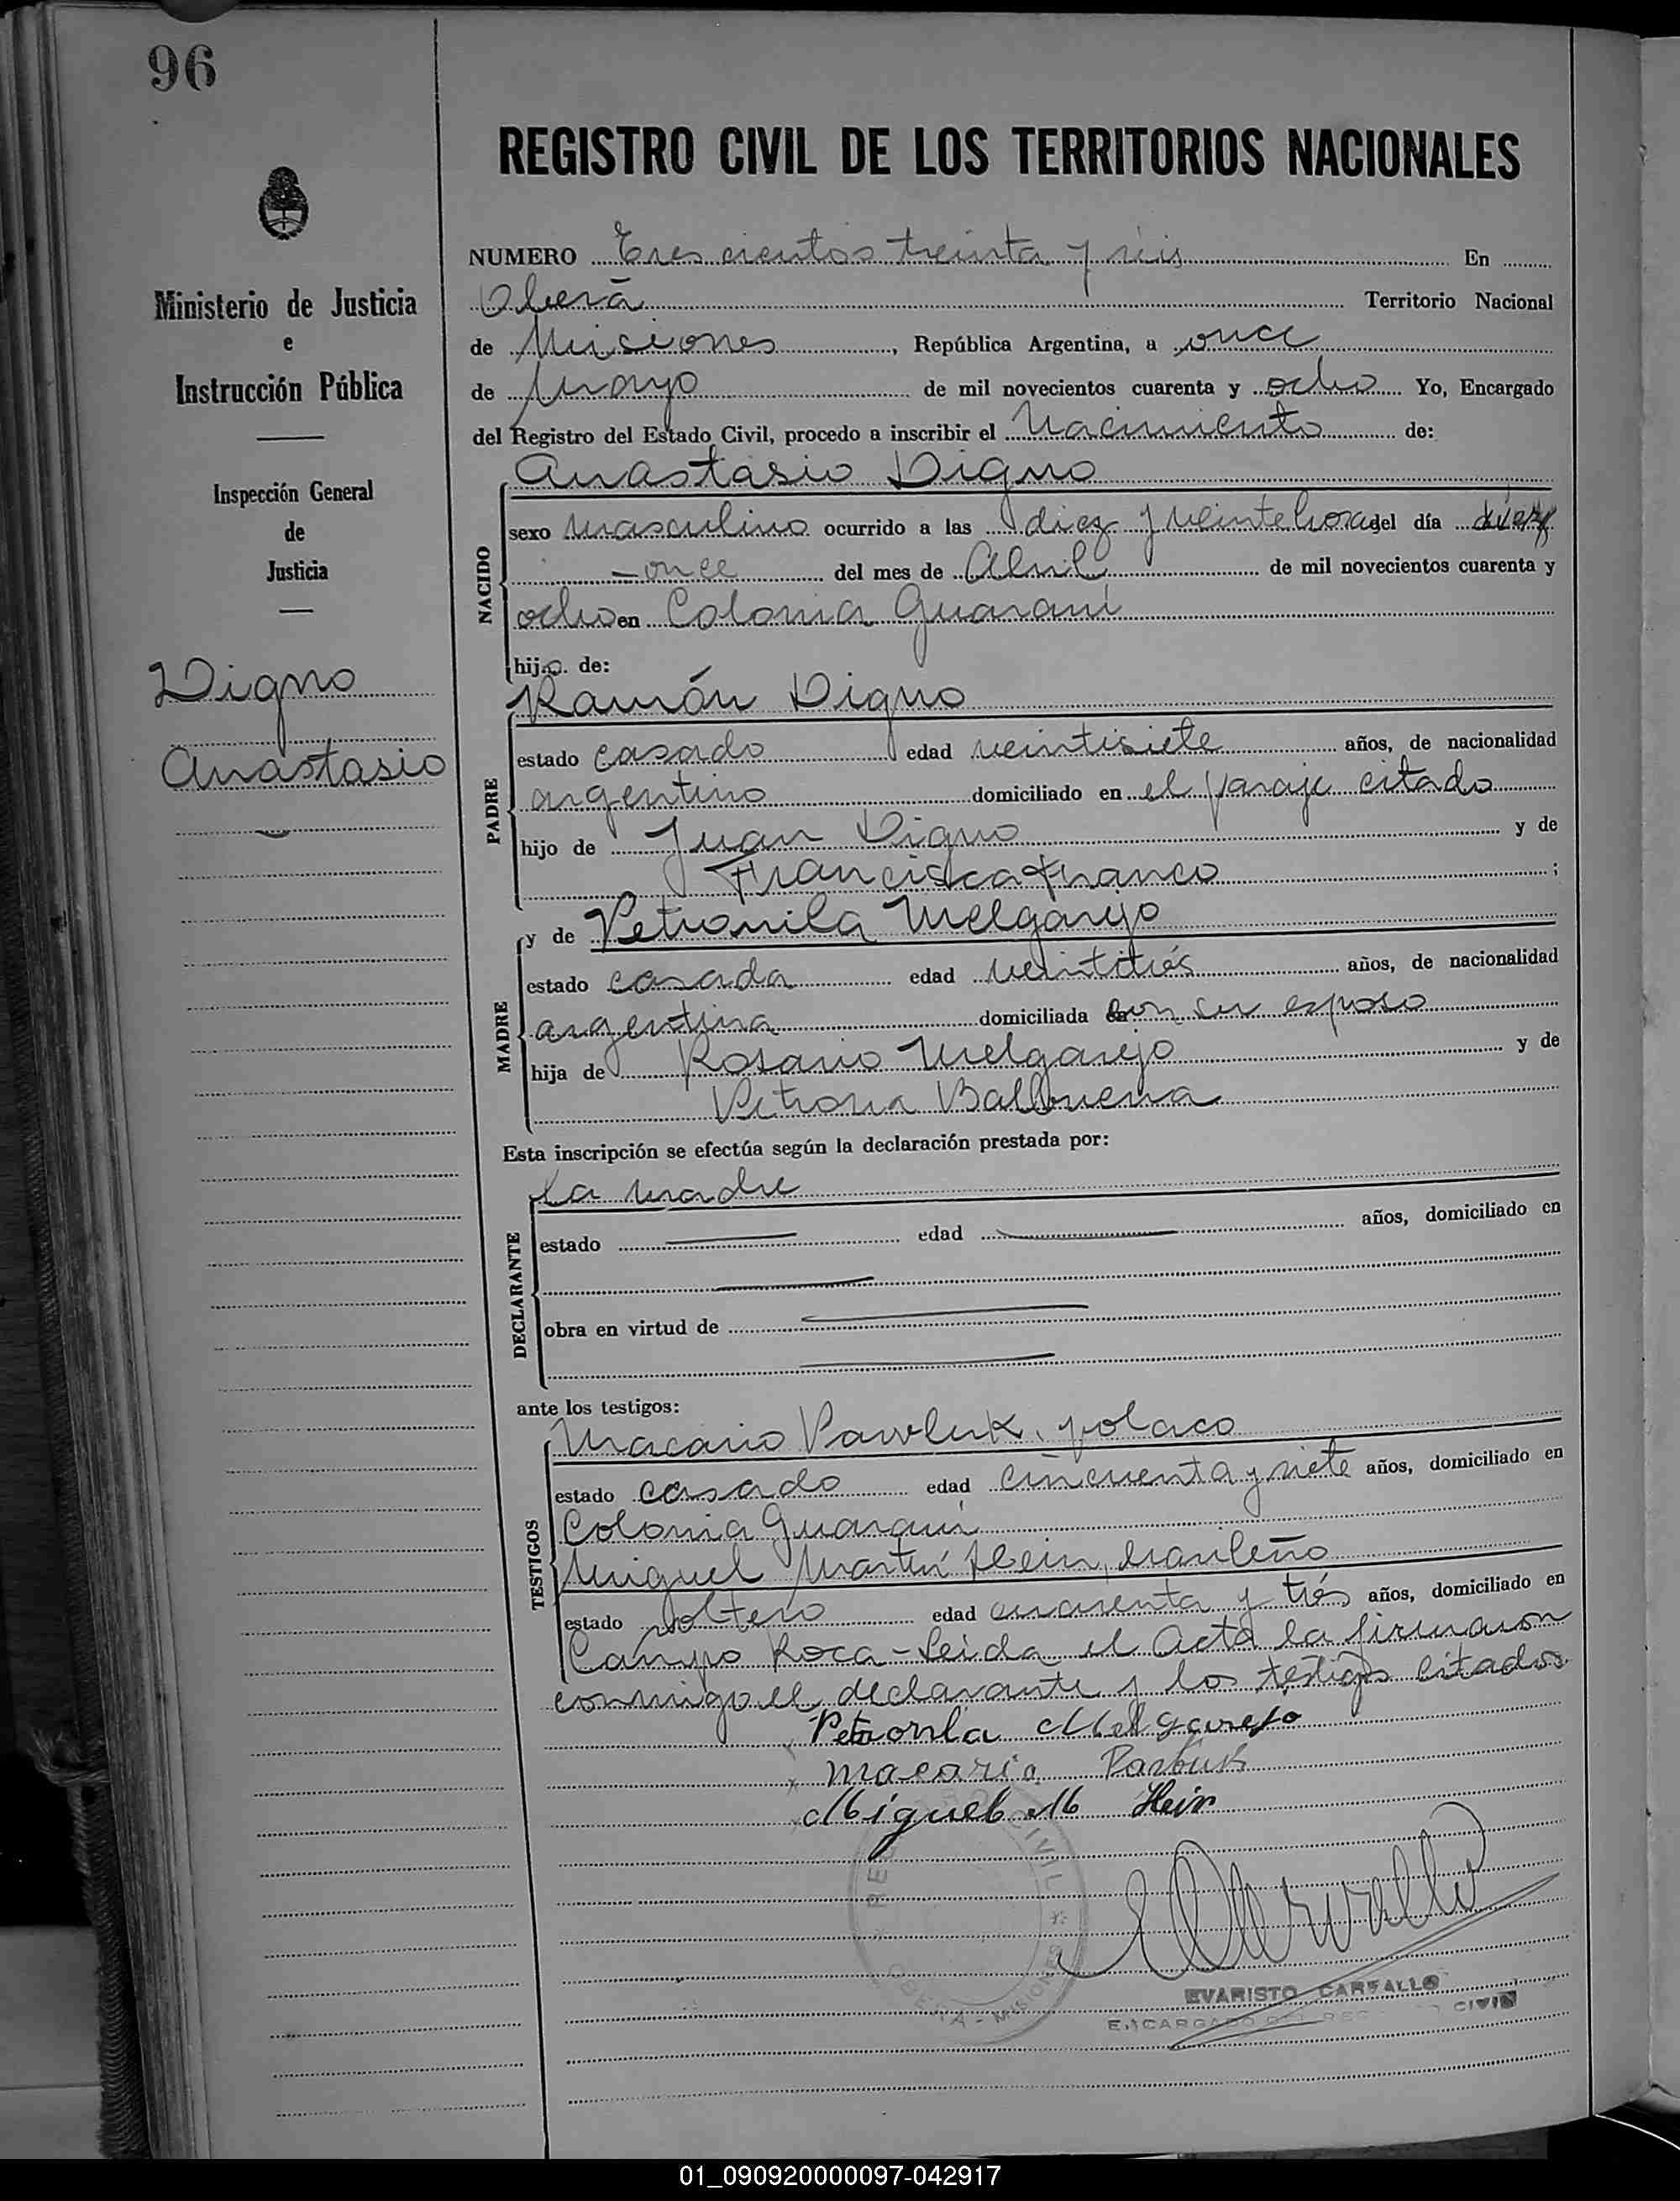 96
REGISTRO CIVIL DE LOS TERRITORIOS NACIONALES
Ministerio de Justicia
e
Instrucción Pública
Inspección General
de
Justicia
Digno
Anastasio
NUMERO Trescientos treinta y seis En
Oberá Territorio Nacional
de Misiones, República Argentina, a once
de Mayo de mil novecientos cuarenta y ocho Yo, Encargado
del Registro del Estado Civil, procedo a inscribir el Nacimiento de:
Anastasio Digno
NACIDO
sexo masculino ocurrido a las diez y veinte horas del día
- once del mes de Abril de mil novecientos cuarenta y
ocho en Colonia Guaraní
hijo de:
Ramón Digno
PADRE
estado casado edad veintisiete años, de nacionalidad
argentino domiciliado en el paraje citado
hijo de Juan Digno y de
Francisca Franco;
y de Petronila Melgarejo
MADRE
estado casada edad veintitrés años, de nacionalidad
argentina domiciliada con su esposo
hija de Rosario Melgarejo y de
Petrona Balbuena
Esta inscripción se efectúa según la declaración prestada por:
La madre
DECLARANTE
estado edad años, domiciliado en
obra en virtud de
ante los testigos:
Macario Pawluk, polaco
TESTIGOS
estado casado edad cincuenta y siete años, domiciliado en
Colonia Guaraní
Miguel Martín Hein, brasileño
estado soltero edad cuarenta y trés años, domiciliado en
Campo Roca - Leida el Acta la firmaron
conmigo el declarante y los testigos citados
Petronla Melgarejo
macario
Miguel M Hein
REGISTRO CIVIL
OBERA - MISIONES
EVARISTO CARVALLO
ENCARGADO DEL REG CIVIL
01_090920000097-042917